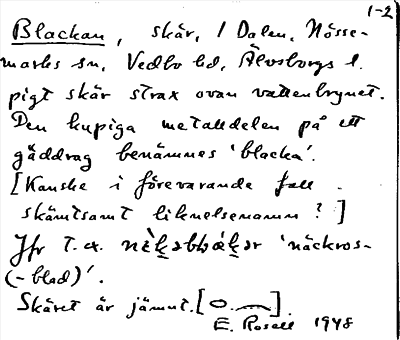 1-2
Blackan, skär, / Dalen, Nösse-
marks sn, Vedbo hd, Älvsborgs l.
pigt skär strax ovan vattenbrynet.
Den kupiga metalldelen på ett
gäddrag benämnes 'blacka'.
[Kanske i förevarande fall
skämtsamt liknelsenamn?]
Jfr t.ex. 'näckros-
(-blad)'.
Skäret är jämnt.
E. Rosell 1948